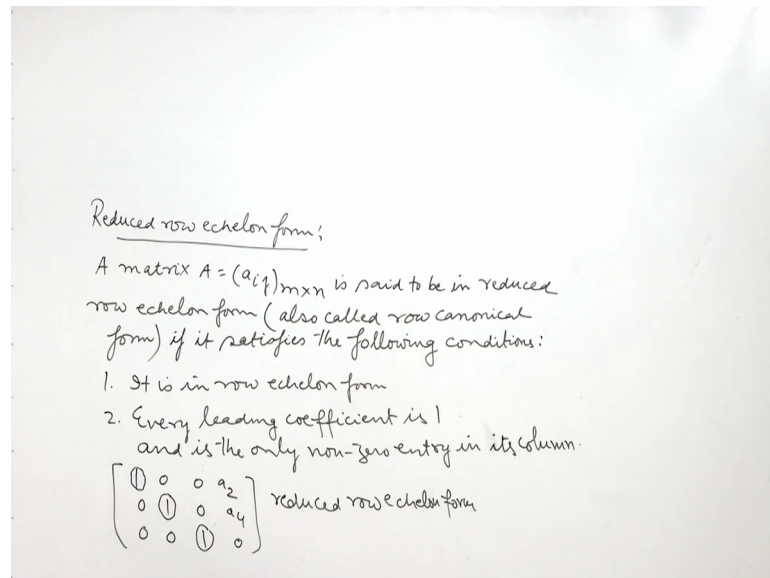 Reduced row echelon form;
A matrix A = (aij)m×n is said to be in reduced
row echelon form (also called row canonical
form) if it satisfies the following conditions:
1. It is in row echelon form
2. Every leading coefficient is 1
and is the only non-zero entry in its column.
[1 0 0 a2
0 1 0 a4
0 0 1 0] reduced row echelon form